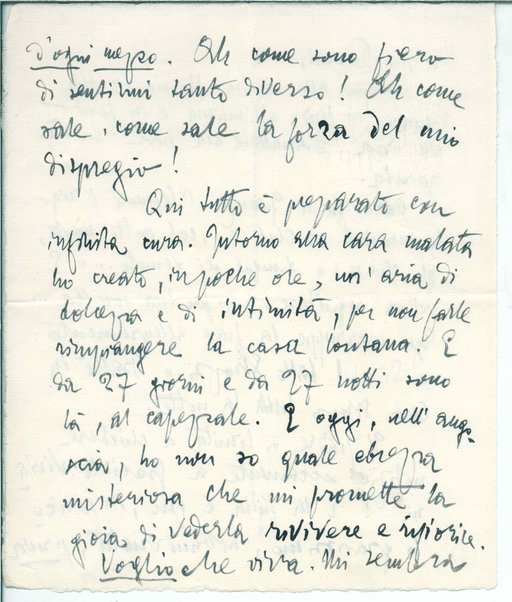 d'ogni mezzo. Oh come sono fiero
di sentirmi tanto diverso! Oh come
sale, come sale la forza del mio
dispregio!
Qui tutto è preparato con
infinita cura. Intorno alla cara malata
ho creato, in poche ore, un'aria di
dolcezza e di intimità, per non farle
rimpiangere la casa lontana. E
da 27 giorni e da 27 notti sono
là, al capezzale. E oggi, nell'ango-
scia, ho non so quale ebrezza
misteriosa che mi promette la
gioia di vederla rivivere e rifiorire.
Voglio che viva. Mi sembra